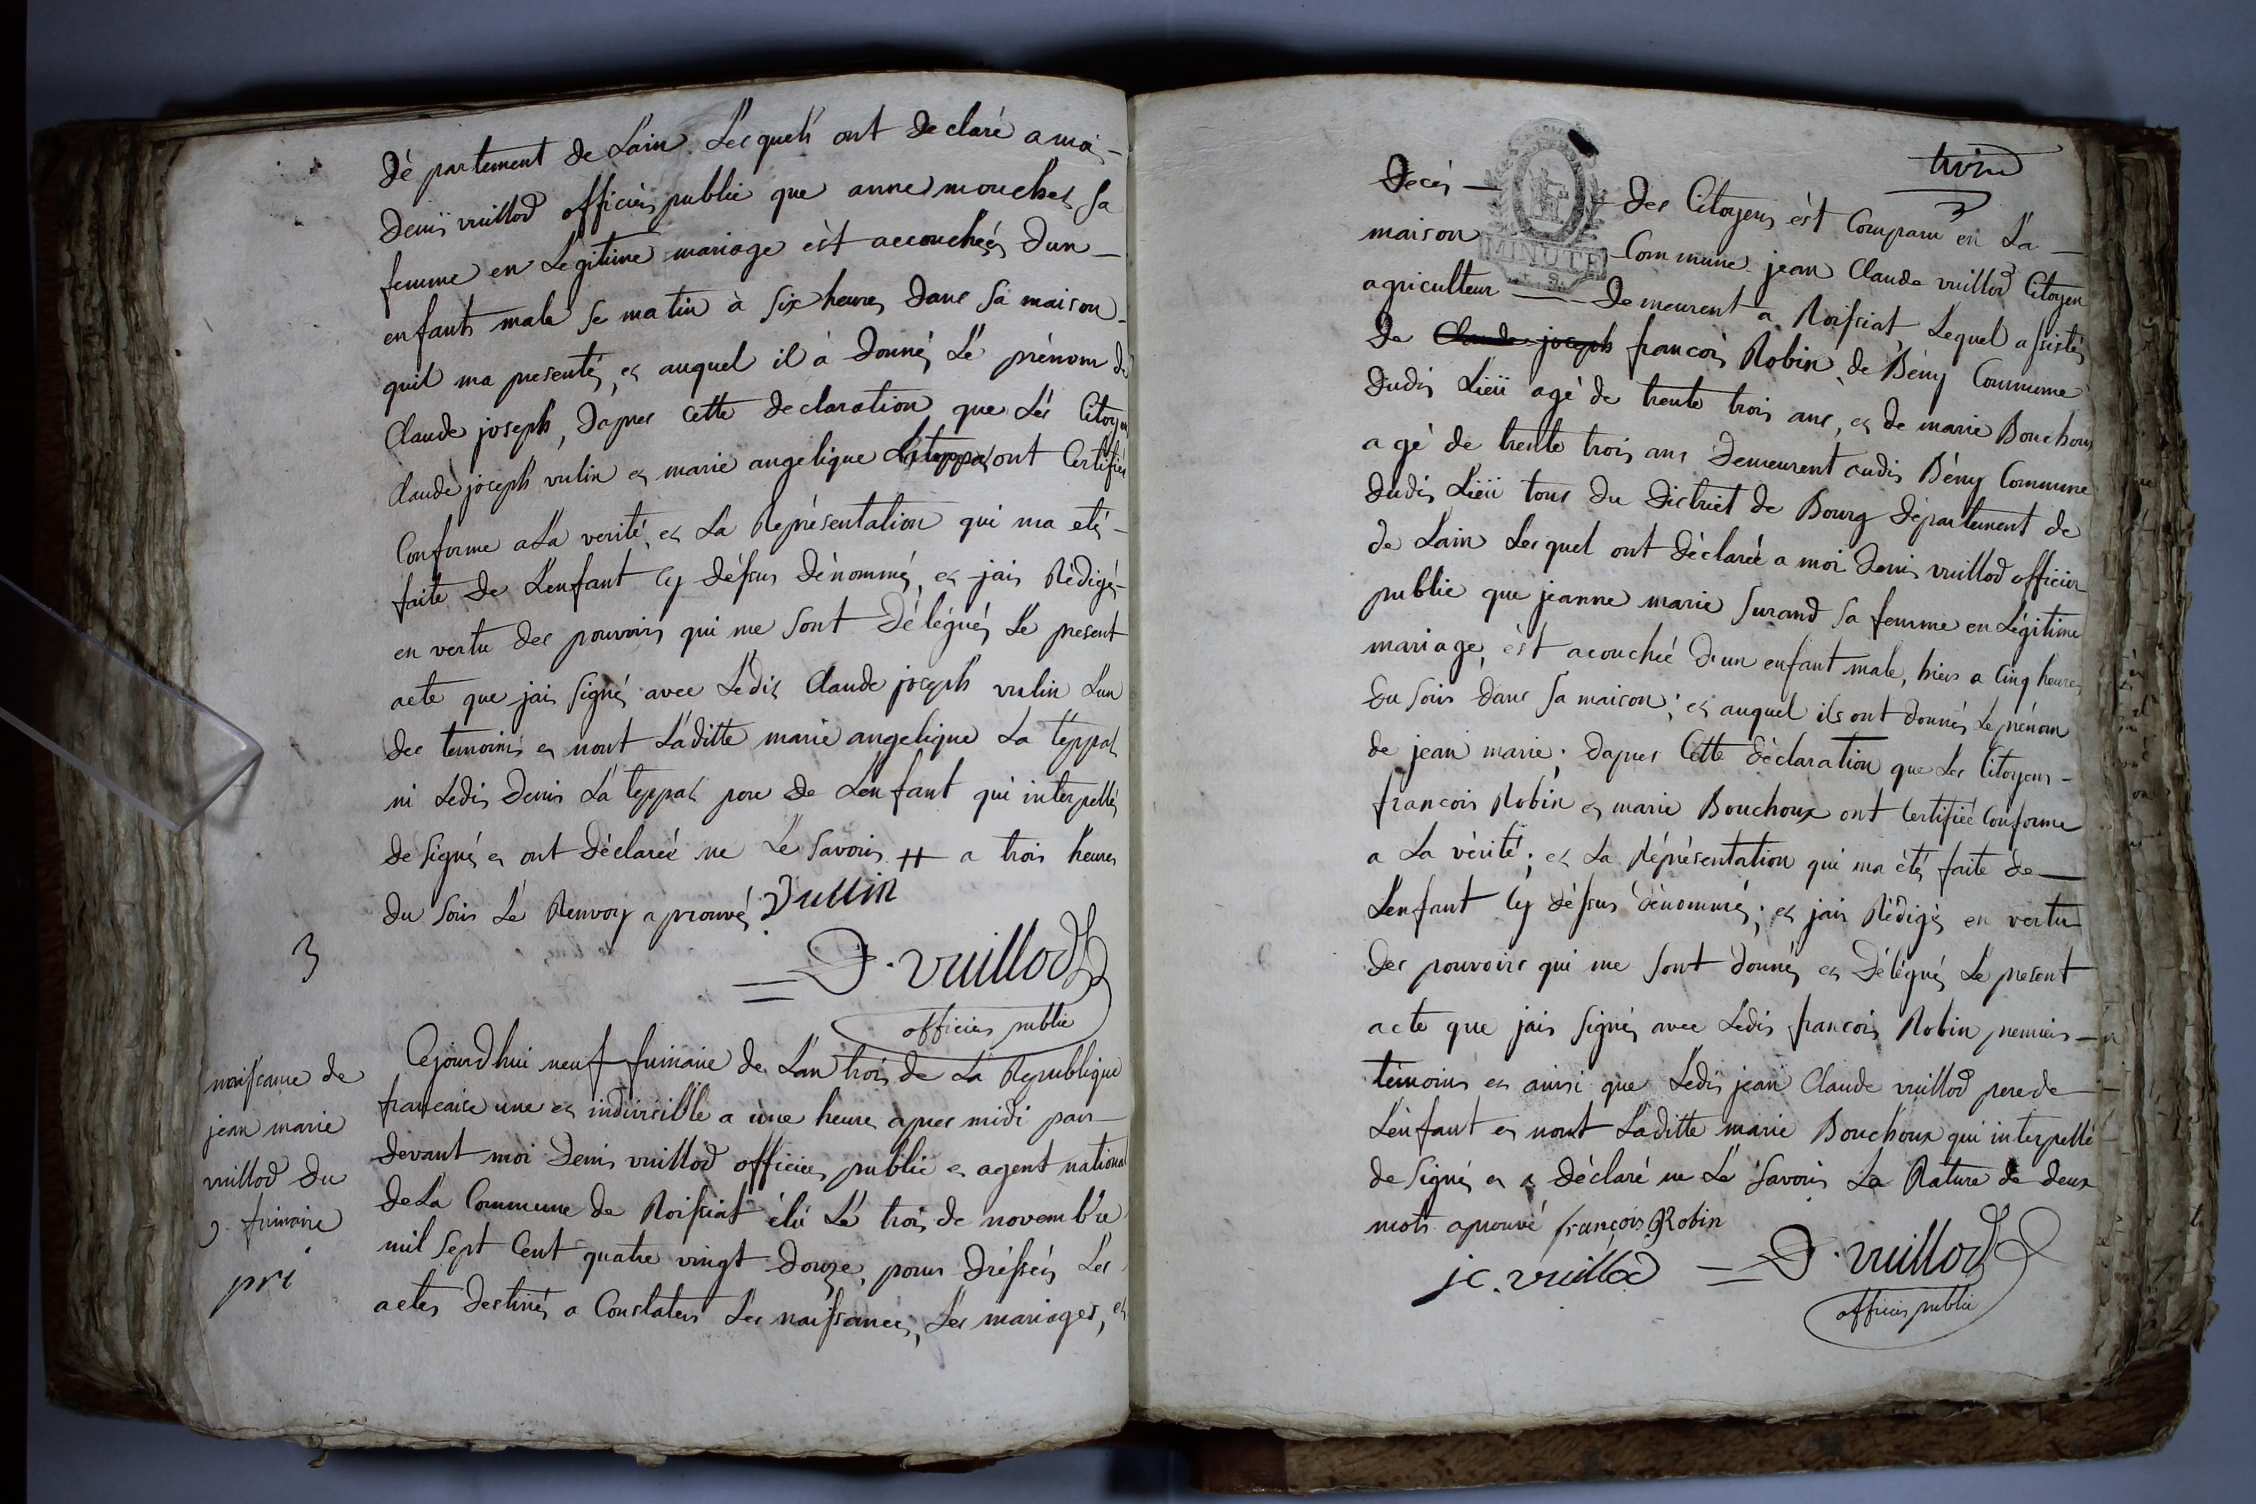 département de Lain Lesquels ont declaré a moi
Denis vuillod officier public que anne mouches sa
femme en Legitime mariage èst accouchés dun
enfants male se matin à six heures dans sa maison
quil ma presentés, et auquel il à donnés Le prénom de
Claude joseph, Dapres Cette declaration que Les Citoyens
Claude joseph vulin et marie angelique La teppas ont Certifiés
Conforme a La verité, et La Représentation qui ma etés
faite de Lenfant Cy déssus dénommés, et jais Rédigés
en vertu des pouvoirs qui me sont Délégués Le present
acte que jais signés avec Ledis Claude joseph vulin Lun
des temoins et nont Laditte marie angelique La teppas
ni Ledis Denis La teppas pere de Lenfant qui interpellés
de signés et ont déclaréé ne Le savoirs # a trois heures
du soirs Le Renvoy aprouvés Vullin
3
= D. vuillod
officier public
naissance de
jean marie
vuillod du
9 frimaire
pri
Cejourdhui neuf frimaire de Lan trois de La Republique
francaise une et indivisible a une heures apres midi par
devant moi Denis vuillod officier public et agent national
de La Commune de Roissiat élu Le trois de novembre
mil sept Cent quatre vingt douze, pour dréssés Les
actes destinés a Constater Les naissances, Les mariages, et
trois
3
Decès — des Citoyens èst Comparu en La
MINUTE
maison Commune jean Claude vuillod Citoyen
agriculteur — demeurent a Roissiat Lequel assistés
de Claude joseph francois Robin de Bény Commune
dudis Lieü agé de trente trois ans, et de marie Bouchoux
agé de trente trois ans demeurent audis Bény Commune
dudis Lieü tous du District de Bourg département de
de Lain Lesquel ont déclaréé a moi Denis vuillod officier
public que jeanne marie surand sa femme en Légitime
mariage, èst acouchée d'un enfant male, hiers a Cinq heures
du soirs dans sa maison; et auquel ils ont donnés Le prénom
de jean marie. dapres Cette déclaration que Les Citoyens
francois Robin et marie Bouchoux ont Certifiéé Conforme
a La vérité; et La Réprésentation qui ma étés faite de
Lenfant Cy déssus dénommés; et jais Rédigés en vertu
des pouvoirs qui me sont donnés et Délégués Le present
acte que jais signés avec Ledis francois Robin premiers
témoins et ainsi que Ledis jean Claude vuillod pere de
Lenfant et nont Laditte marie Bouchoux qui interpellé
de signés et a déclaré ne Le savoirs La Rature de deux
mots aprouvé françois Robin
jc. vuillod = D. vuillod
officier public